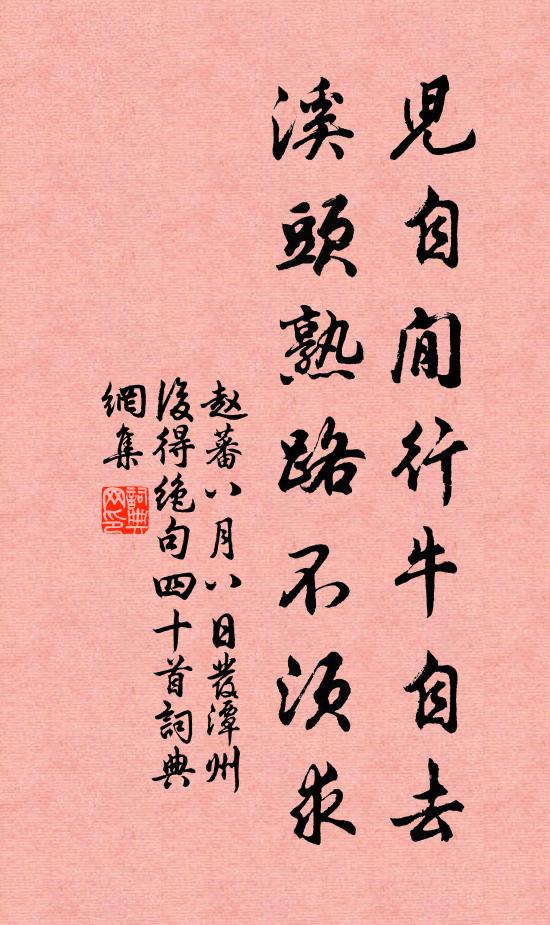 兒自閒行牛自去
溪頭熟路不須求
赵蕃八月八日發潭州
後得绝句四十首詞典
網集
詞典
网印